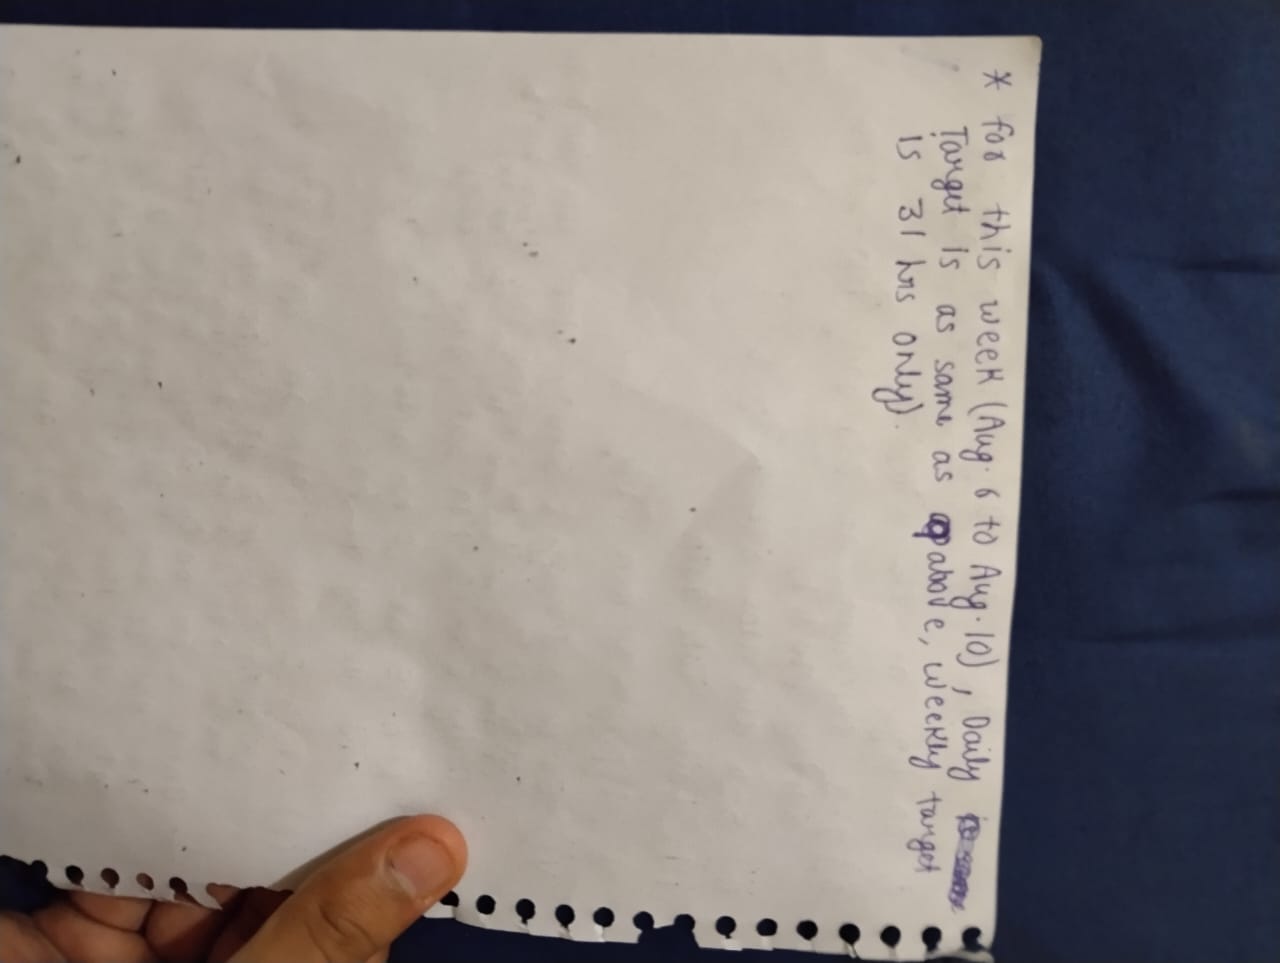 * for this week (Aug. 6 to Aug. 10), Daily
Target is as same as above, weekly target
is 31 hrs only).